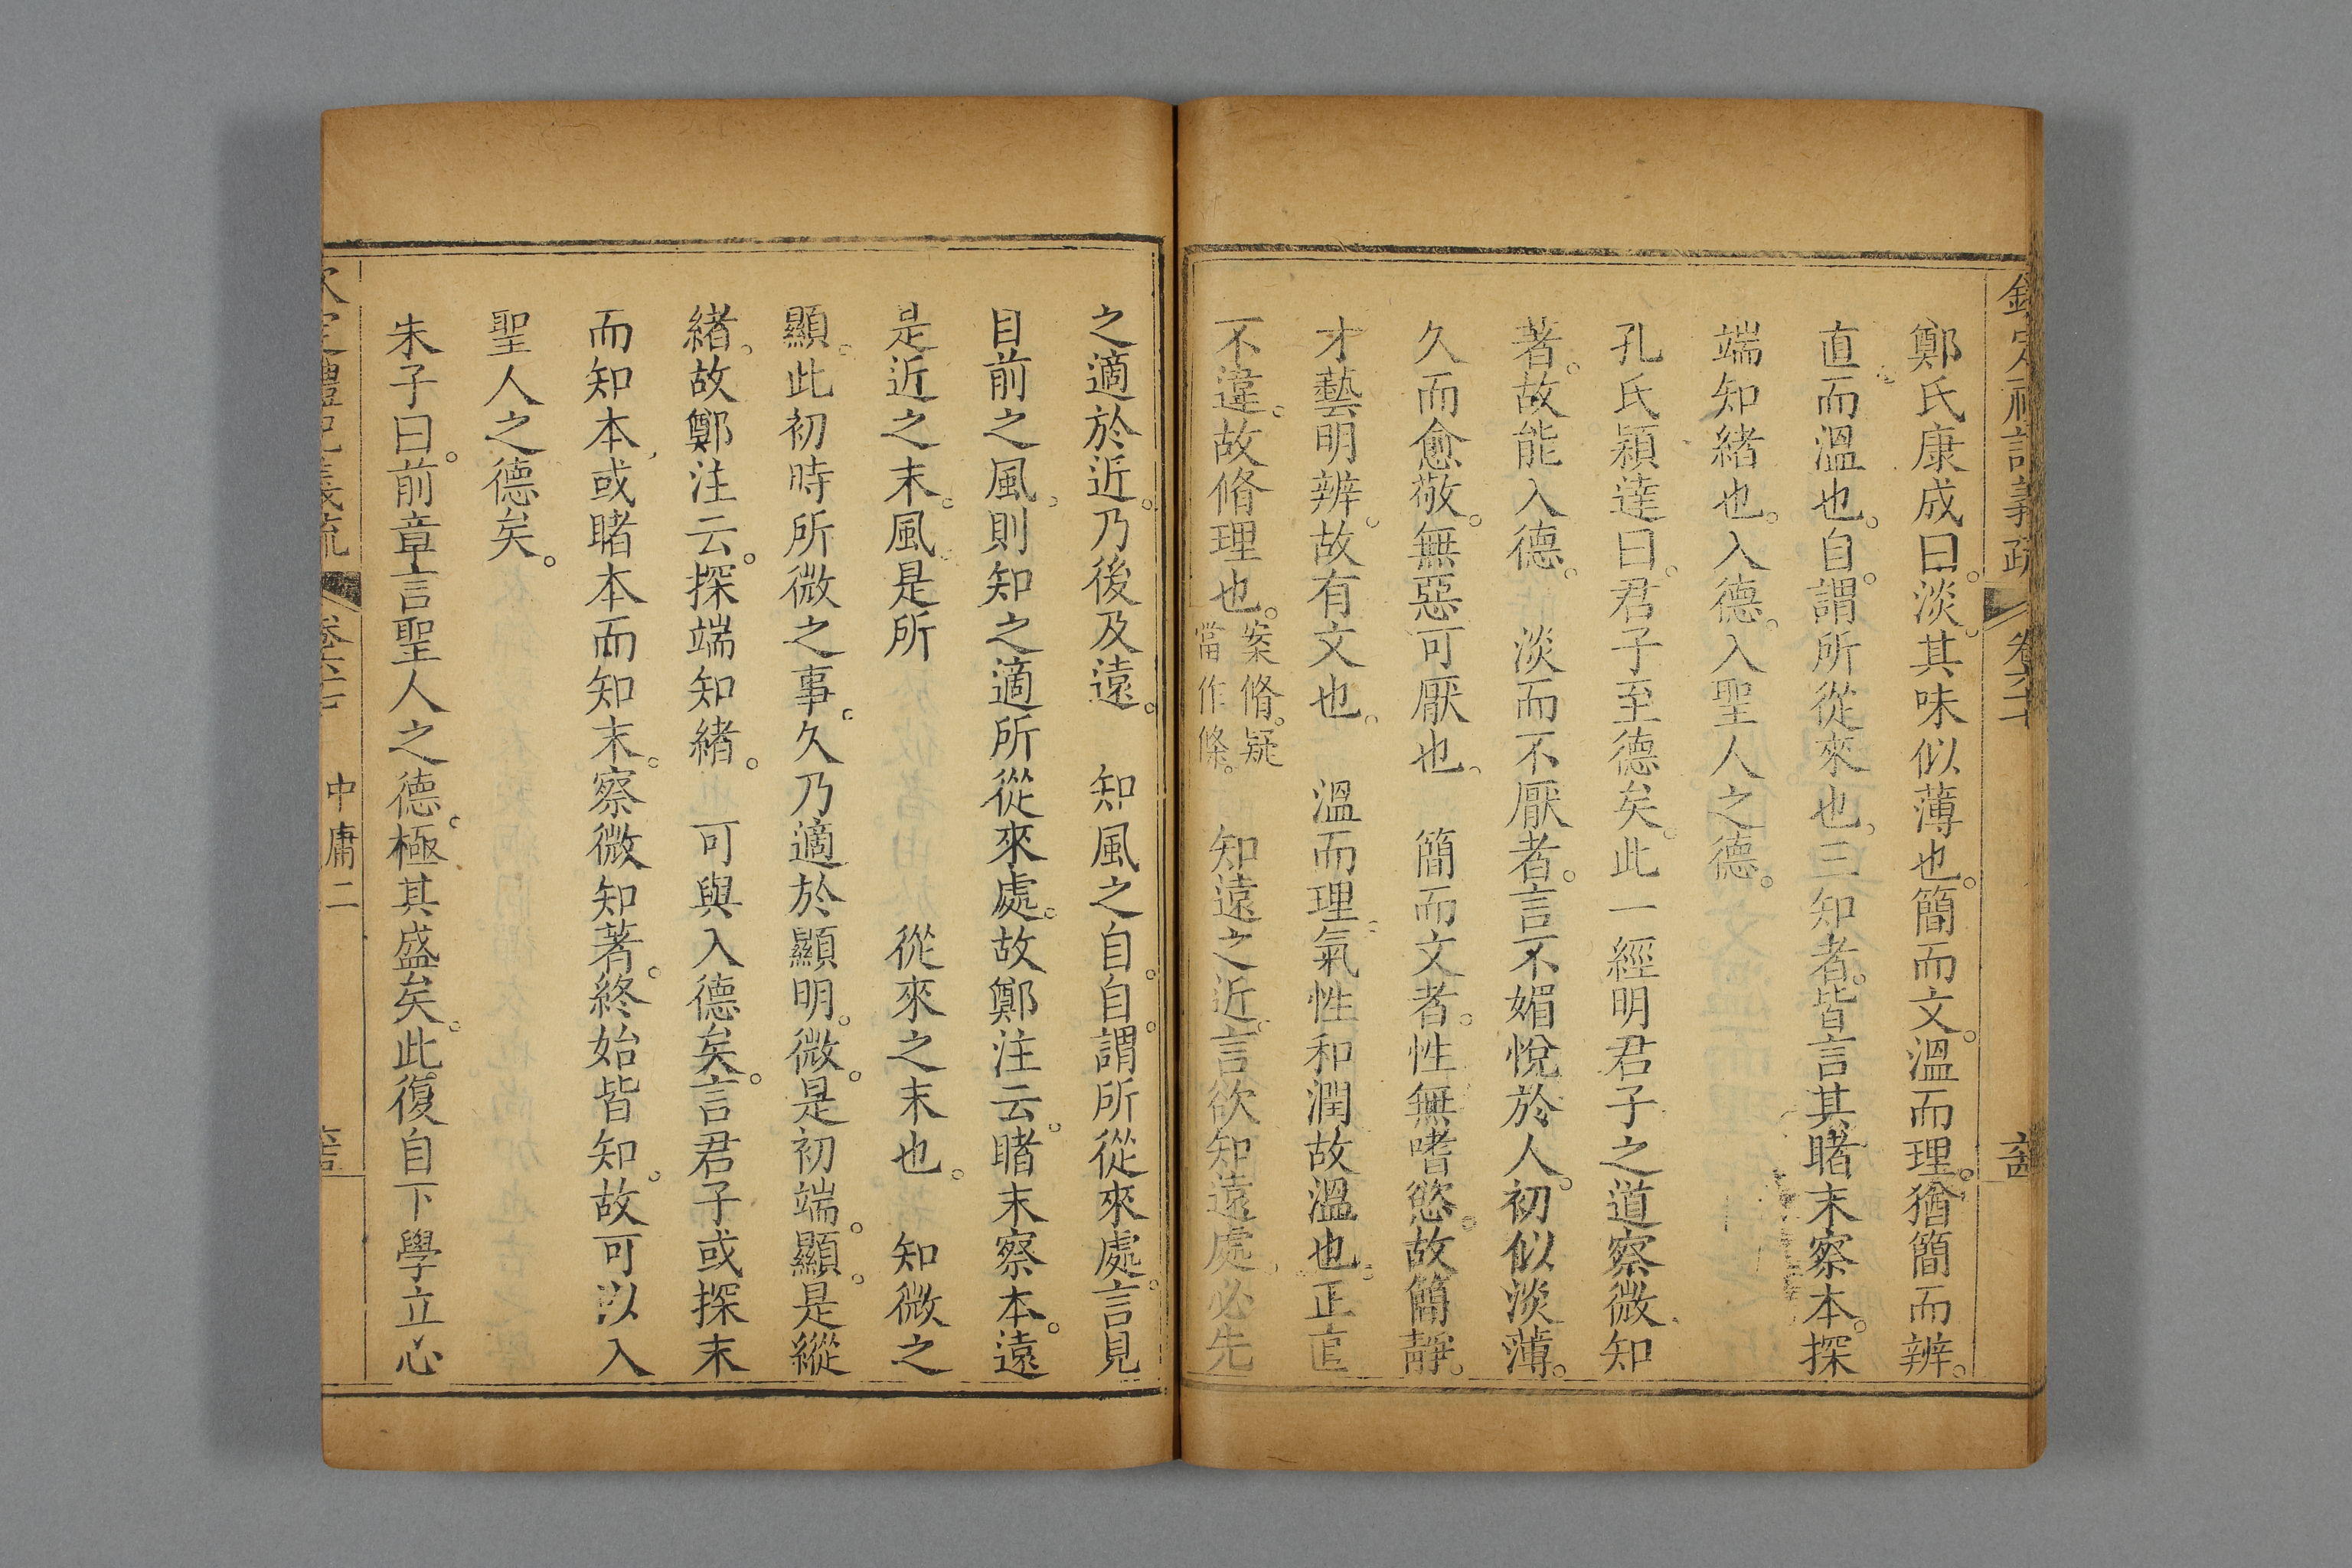 鄭氏康成曰。淡。其味似薄也。簡而文。溫而理。猶簡而辨。
直而溫也。自。謂所從來也。三知者。皆言其睹末察本。探
端知緒也。入德。入聖人之德。
孔氏穎達曰。君子至德矣。此一經明君子之道察微知
著。故能入德。　淡而不厭者。言不媚悅於人。初似淡薄。
久而愈敬。無惡可厭也。　簡而文者。性無嗜慾。故簡靜。
才藝明辨。故有文也。　溫而理。氣性和潤故溫也。正直
不違。故脩理也。案脩。疑當作條。　知遠之近。言欲知遠處。必先
之適於近。乃後及遠。　知風之自。自。謂所從來處。言見
目前之風。則知之適所從來處。故鄭注云。睹末察本。遠
是近之末。風是所　　　　　從來之末也。　知微之
顯。此初時所微之事。久乃適於顯明。微。是初端。顯。是縱
緒。故鄭注云。探端知緒。　可與入德矣。言君子或探末
而知本。或睹本而知末。察微知著。終始皆知。故可以入
聖人之德矣。
朱子曰。前章言聖人之德。極其盛矣。此復自下學立心
中庸二